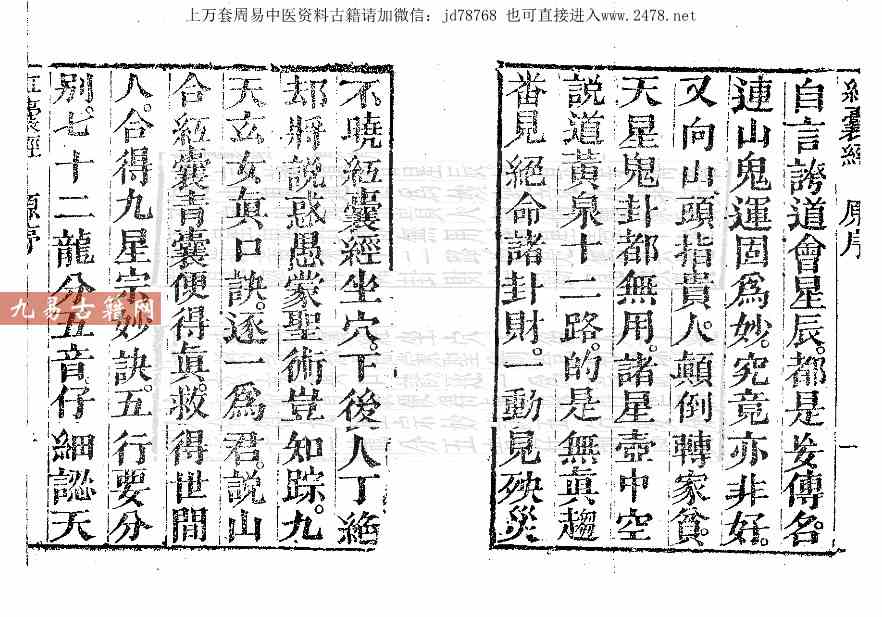 上万套周易中医资料古籍请加微信：jd78768 也可直接进入www.2478.net
紅囊經 原序 一
自言誇道會星辰。都是妄傳名。
連山鬼運固爲妙。究竟亦非好。
又向山頭指貴人。顛倒轉家貧。
天星鬼卦都無用。諸星壺中空
說道黃泉十二路。的是無真趨
番見絕命諸卦財。一動見殃災
不曉紅囊經坐穴。下後人丁絕
却將說惑愚蒙聖術豈知踪。九
天玄女真口訣。逐一爲君說山
合紅囊青囊便得真。救得世間
人。合得九星宗妙訣。五行要分
別。七十二龍分五音。仔細認天
紅囊經 原序
九易古籍网